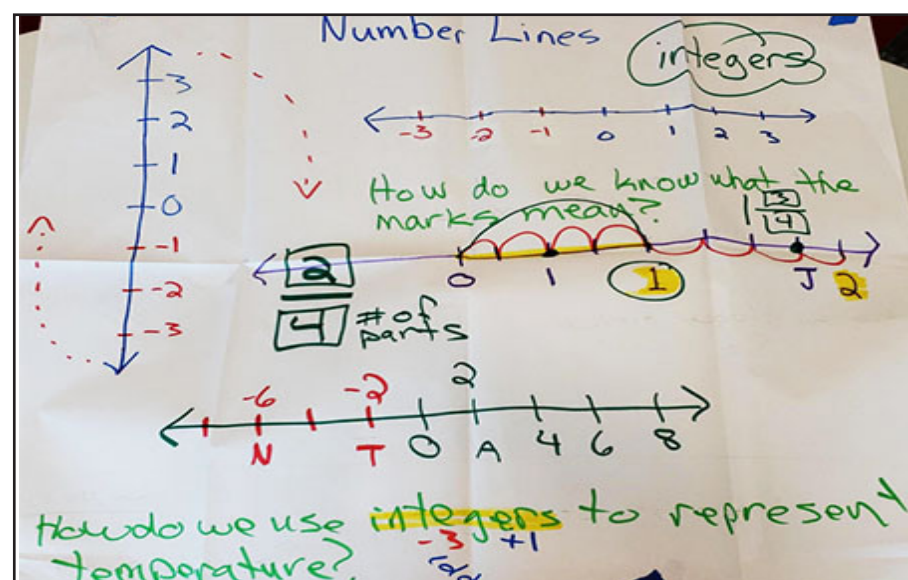 Number Lines
integers
3
2
1
0
-1
-2
-3
-3 -2 -1 0 1 2 3
How do we know what the
marks mean?
1 3/4
0 1 1 J 2
2
4
# of
parts
-6 -2 2
N T 0 A 4 6 8
How do we use integers to represent
temperature?
-3 +1